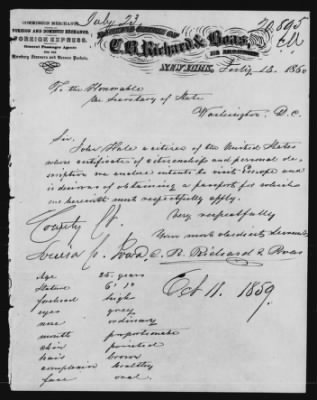 COMMISSION MERCHANT,
FOREIGN AND DOMESTIC EXCHANGE,
FOREIGN EXPRESS.
General Passenger Agents
For the
Hamburg Steamers and Bremen Packets.
July 23
20,595
OFFICE OF
C. B. Richard & Boas,
NEW-YORK, July 13. 1860
To the Honorable
the Secretary of State
Washington, D.C.
Sir,
John Hale a citizen of the United States
whose certificate of citizenship and personal de-
scription we enclose intents to visit Europe and
is desirous of obtaining a passport for which
we herewith most respectfully apply.
Very respectfully
Your most obedient Servants
County Ct.
Louisa Co. Iowa
C. B. Richard & Boas
Oct 11. 1859.
Age 25 years
Stature 6' 1"
forehead high
eyes grey
nose ordinary
mouth proportionate
chin pointed
hair brown
complexion healthy
face oval.